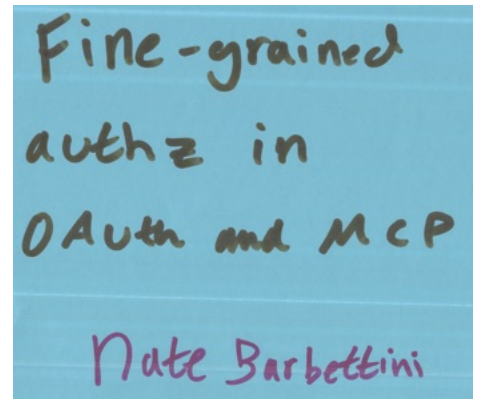 Fine-grained
authz in
OAuth and MCP
Nate Barbettini